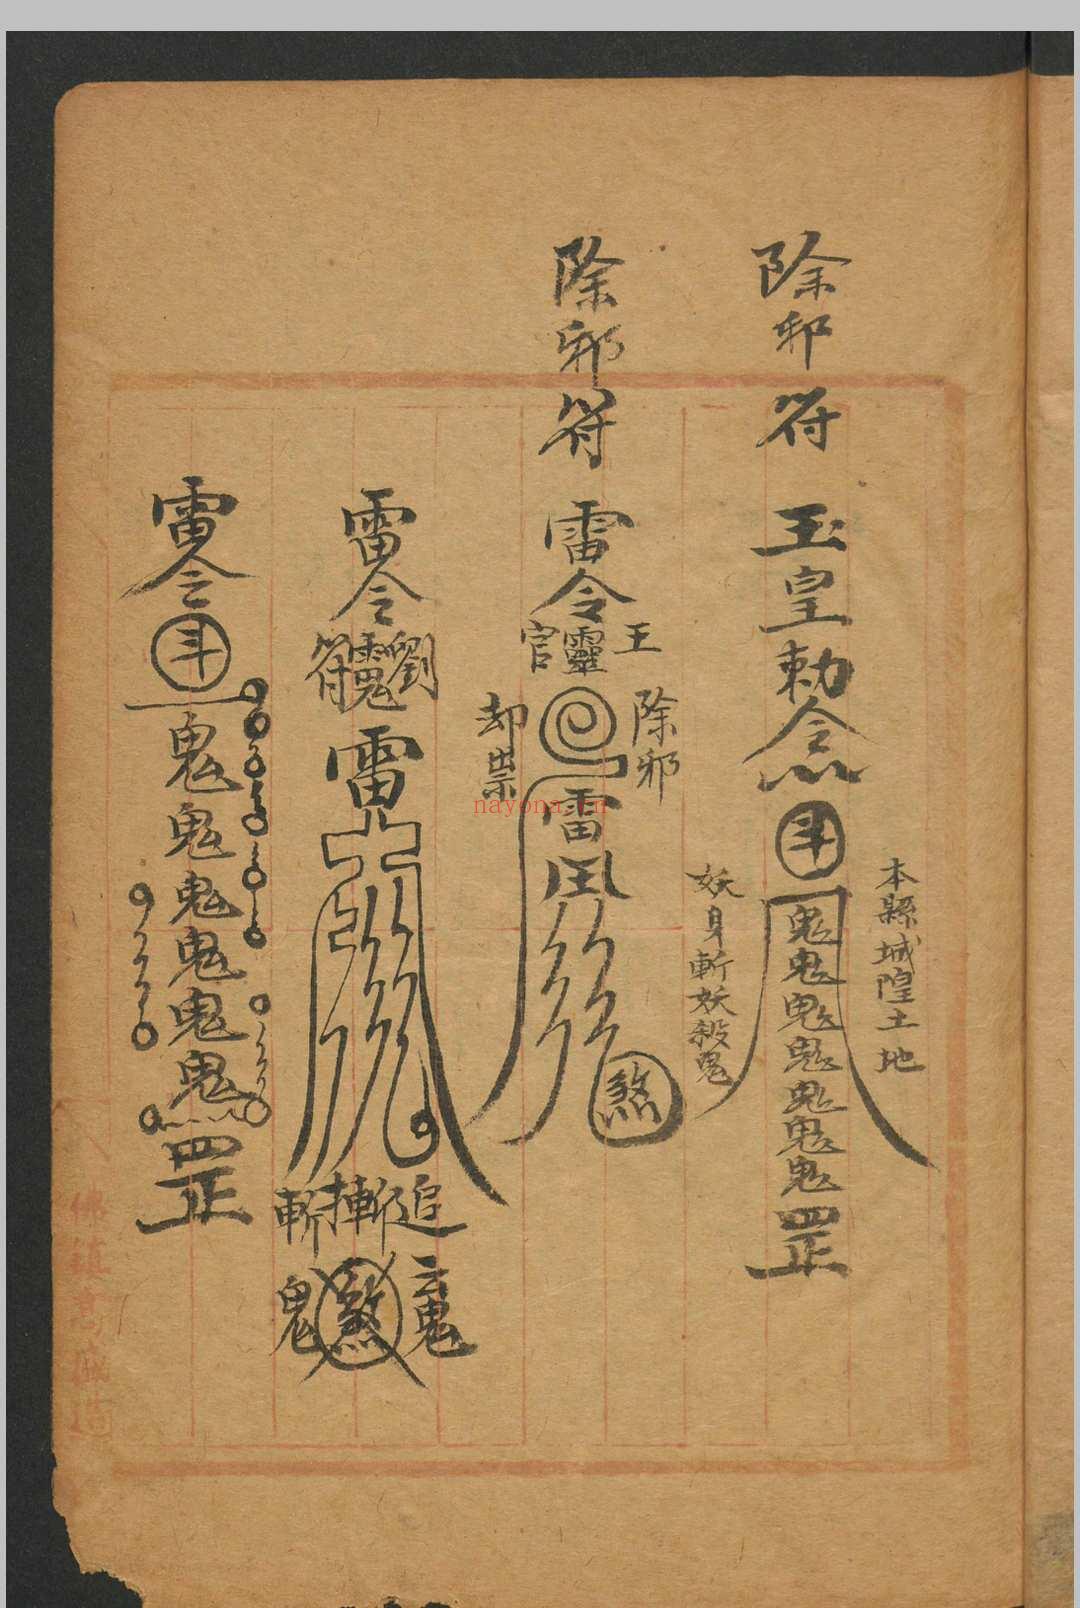 除邪符
玉皇勅令
斗
鬼鬼鬼鬼鬼鬼鬼
罡
本縣城隍土地
妖身斬妖殺鬼
除邪符
雷令
王靈官
除邪
却祟
雷
煞
雷令
劉
符
雷
追
斬
鬼
煞
雷令
斗
鬼鬼鬼鬼鬼鬼
罡
nayona.cn